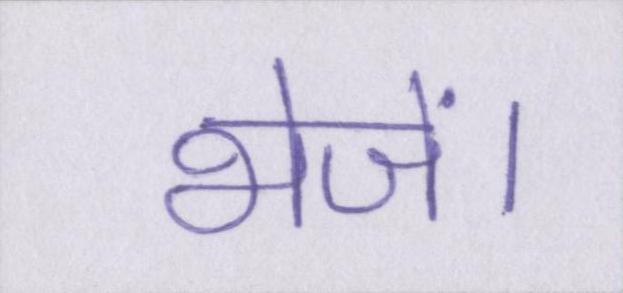 भेजें।